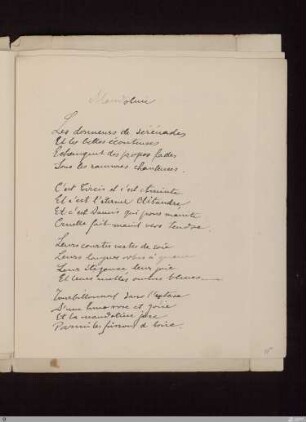 Mandoline
Les donneurs de sérénades
Et les belles écouteuses
Echangent des propos fades
Sous les ramures chanteuses.
C'est Tircis et c'est Aminte
Et c'est l'éternel Clitandre
Et c'est Damis qui pour mainte
Cruelle fait maint vers tendre.
Leurs courtes vestes de soie
Leurs longues robes à queues
Leur élégance, leur joie
Et leurs molles ombres bleues
Tourbillonnent dans l'extase
D'une lune rose et grise
Et la mandoline jase
Parmi les frissons de brise.